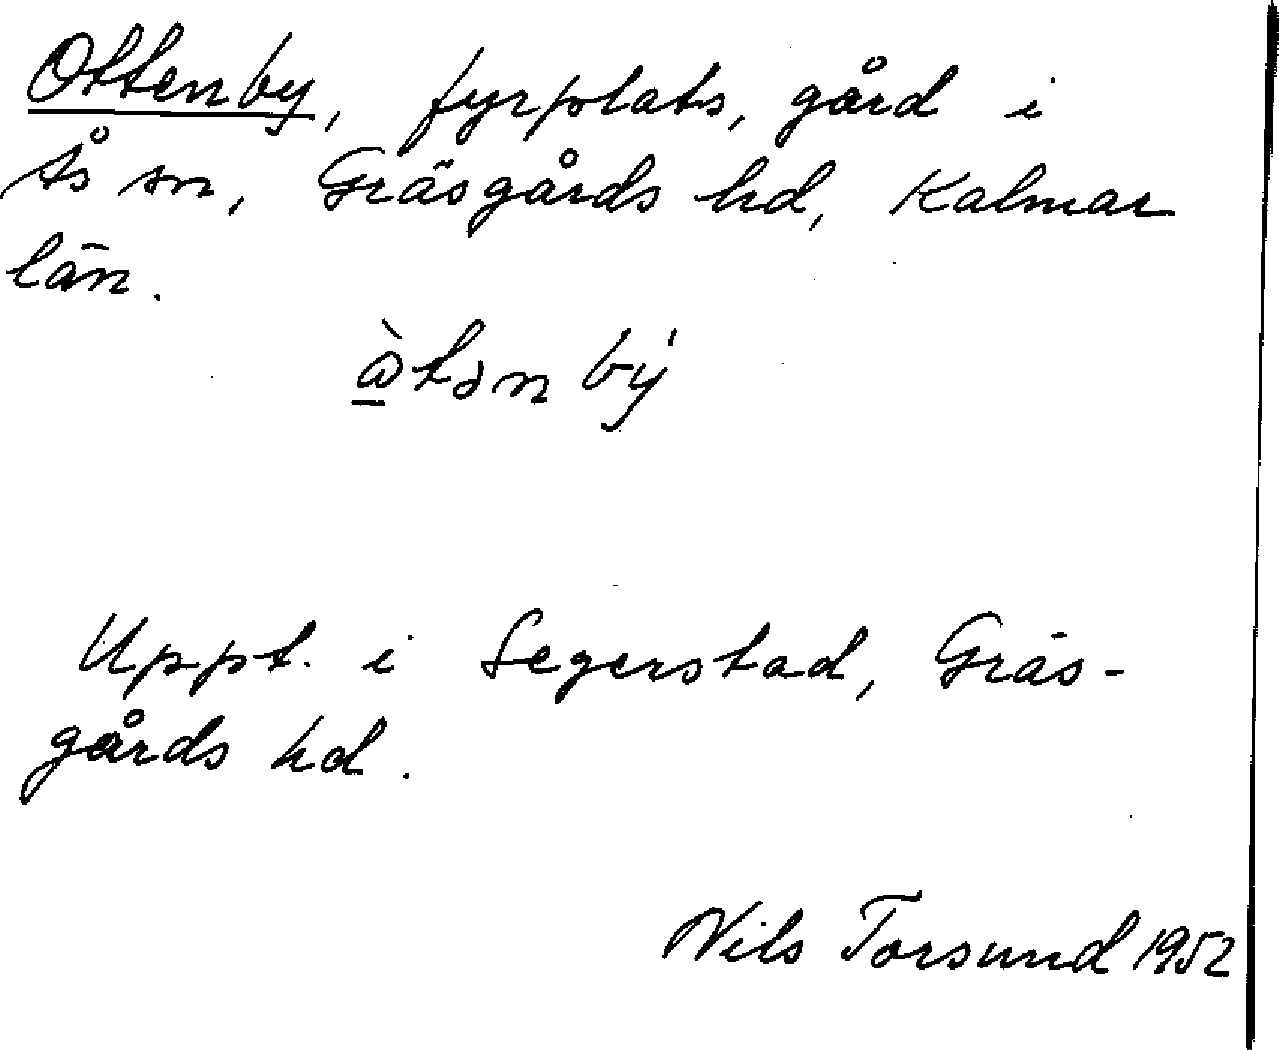 Ottenby, fyrplats, gård i
Ås sn, Gräsgårds hd, Kalmar
län.
ὼtən bý
Uppt. i Segerstad, Gräs-
gårds hd.
Nils Torsund 1952